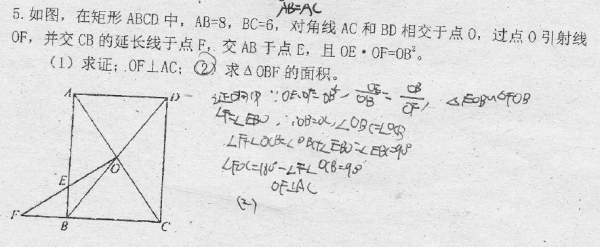 AB=AC
5.如图，在矩形 ABCD 中，AB=8，BC=6，对角线 AC 和 BD 相交于点 O，过点 O 引射线
OF，并交 CB 的延长线于点 F，交 AB 于点 E，且 OE·OF=OB²。
(1)求证：OF⊥AC；(2)求△OBF 的面积。
证明:(1) ∵OE·OF=OB², OE/OB=OB/OF, △EOB∽△FOB
∠F=∠EBO, ∵OB=OC, ∠OBC=∠OCB
∠F+∠OCB=∠OBC+∠EBO=∠EBC=90°
∠FOC=180°-∠F-∠OCB=90°
OF⊥AC
(2)
A
D
O
E
F
B
C